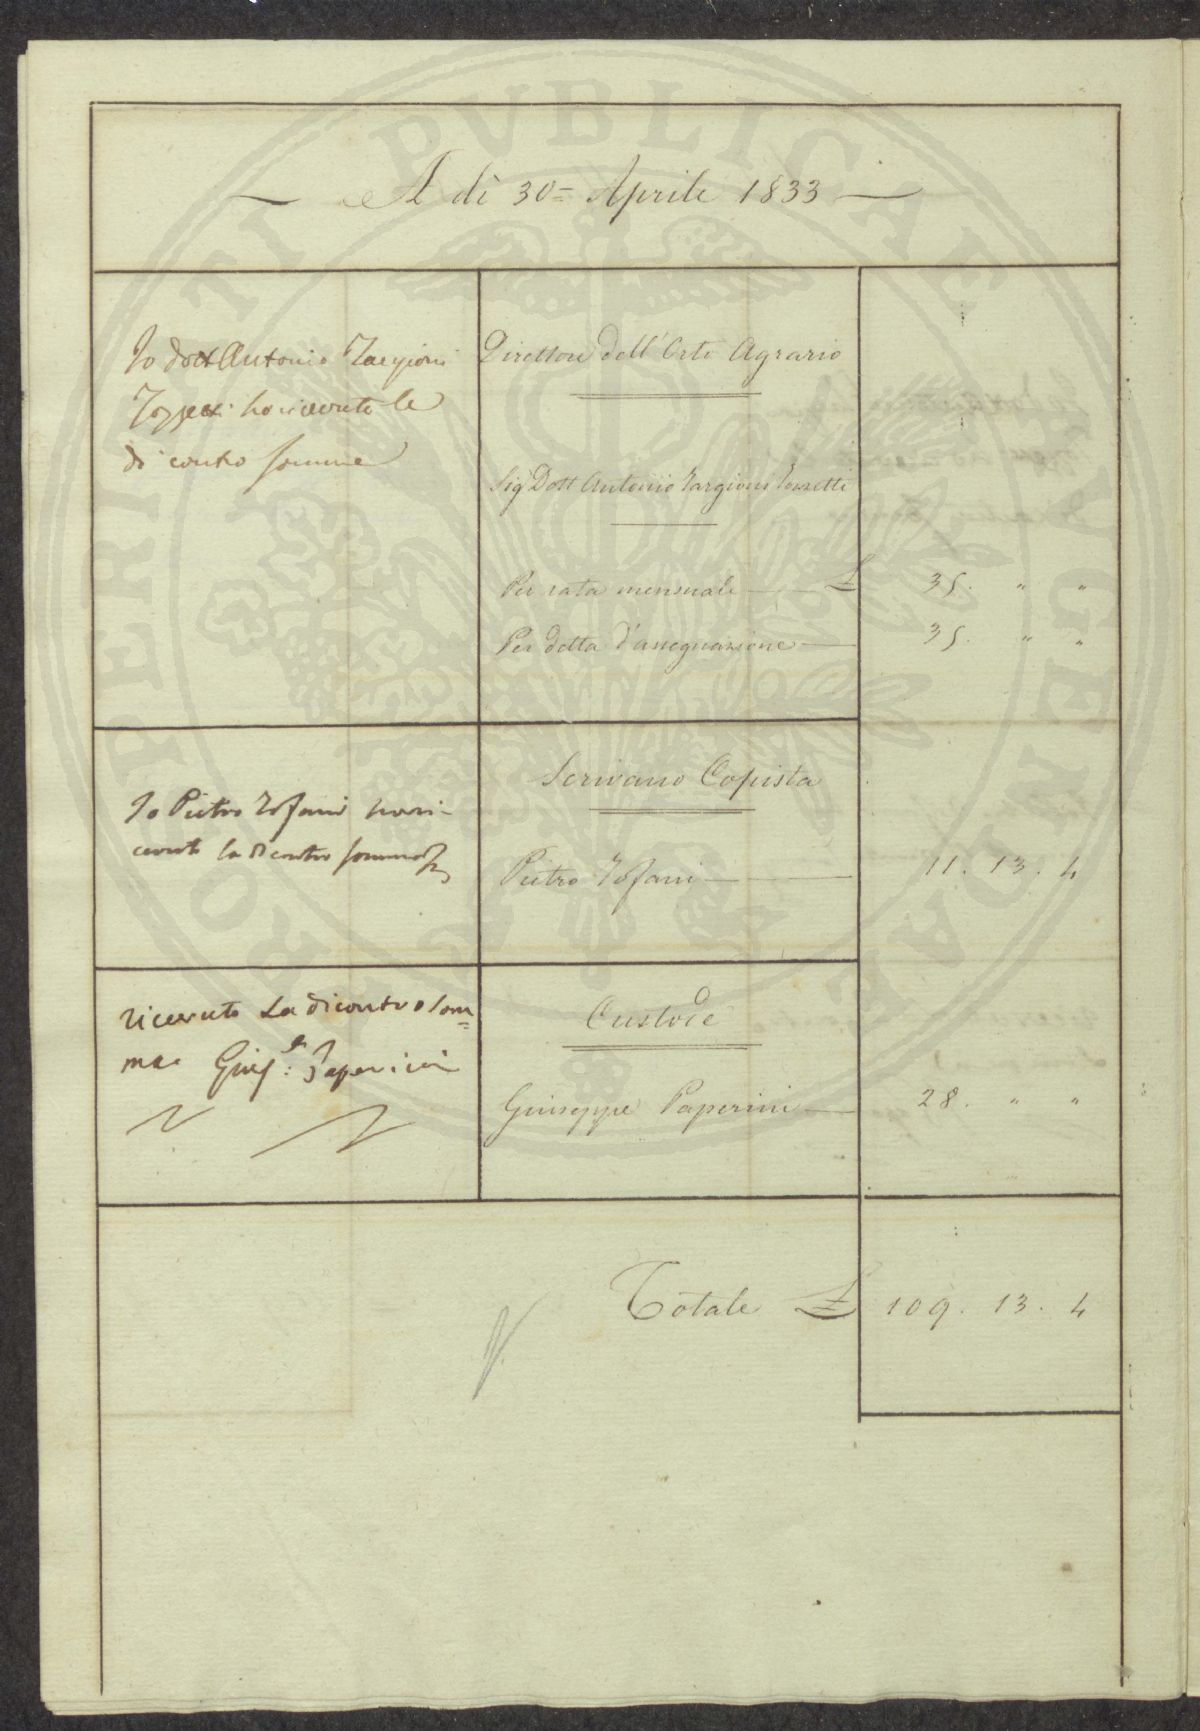 A dì 30= Aprile 1833
Io Dott Antonio Targioni
Tozzetti ho ricevuto le
di contro somme
Direttore dell'Orto Agrario
Sig Dott Antonio Targioni Tozzetti
Per rata mensuale £ 35. " "
Per detta d'assegnazione 35. " "
Io Pietro Tofani ho ri-
cevuto la di contro somma
Scrivano Copista
Pietro Tofani 11. 13. 4
ricevuto La di contro som=
ma Giusᵉ: Paperini
Custode
Giuseppe Paperini 28. " "
Totale £ 109. 13. 4